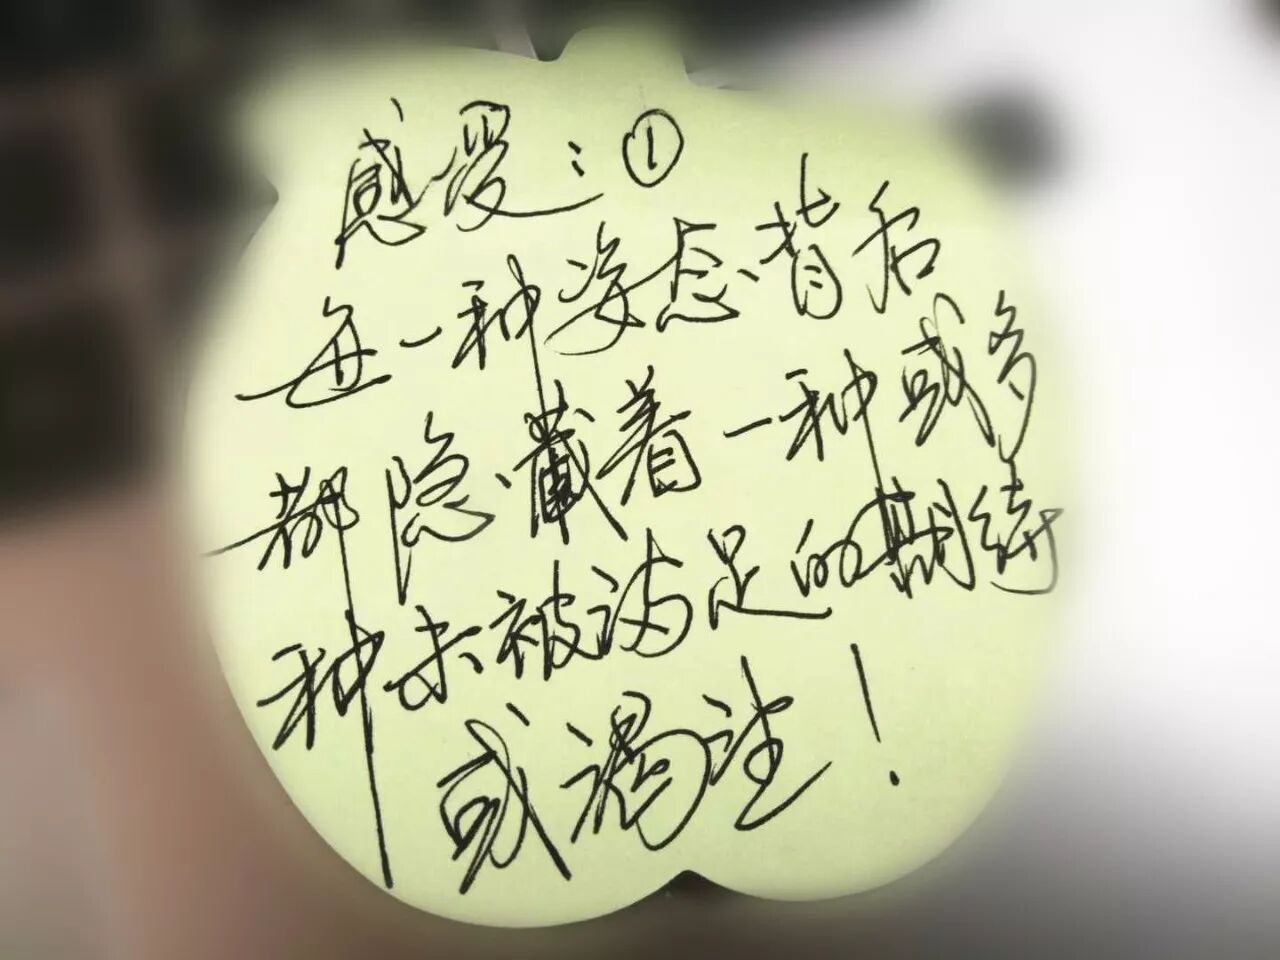 感受：①
每一种姿态背后
都隐藏着一种或多
种未被满足的期待
或渴望！